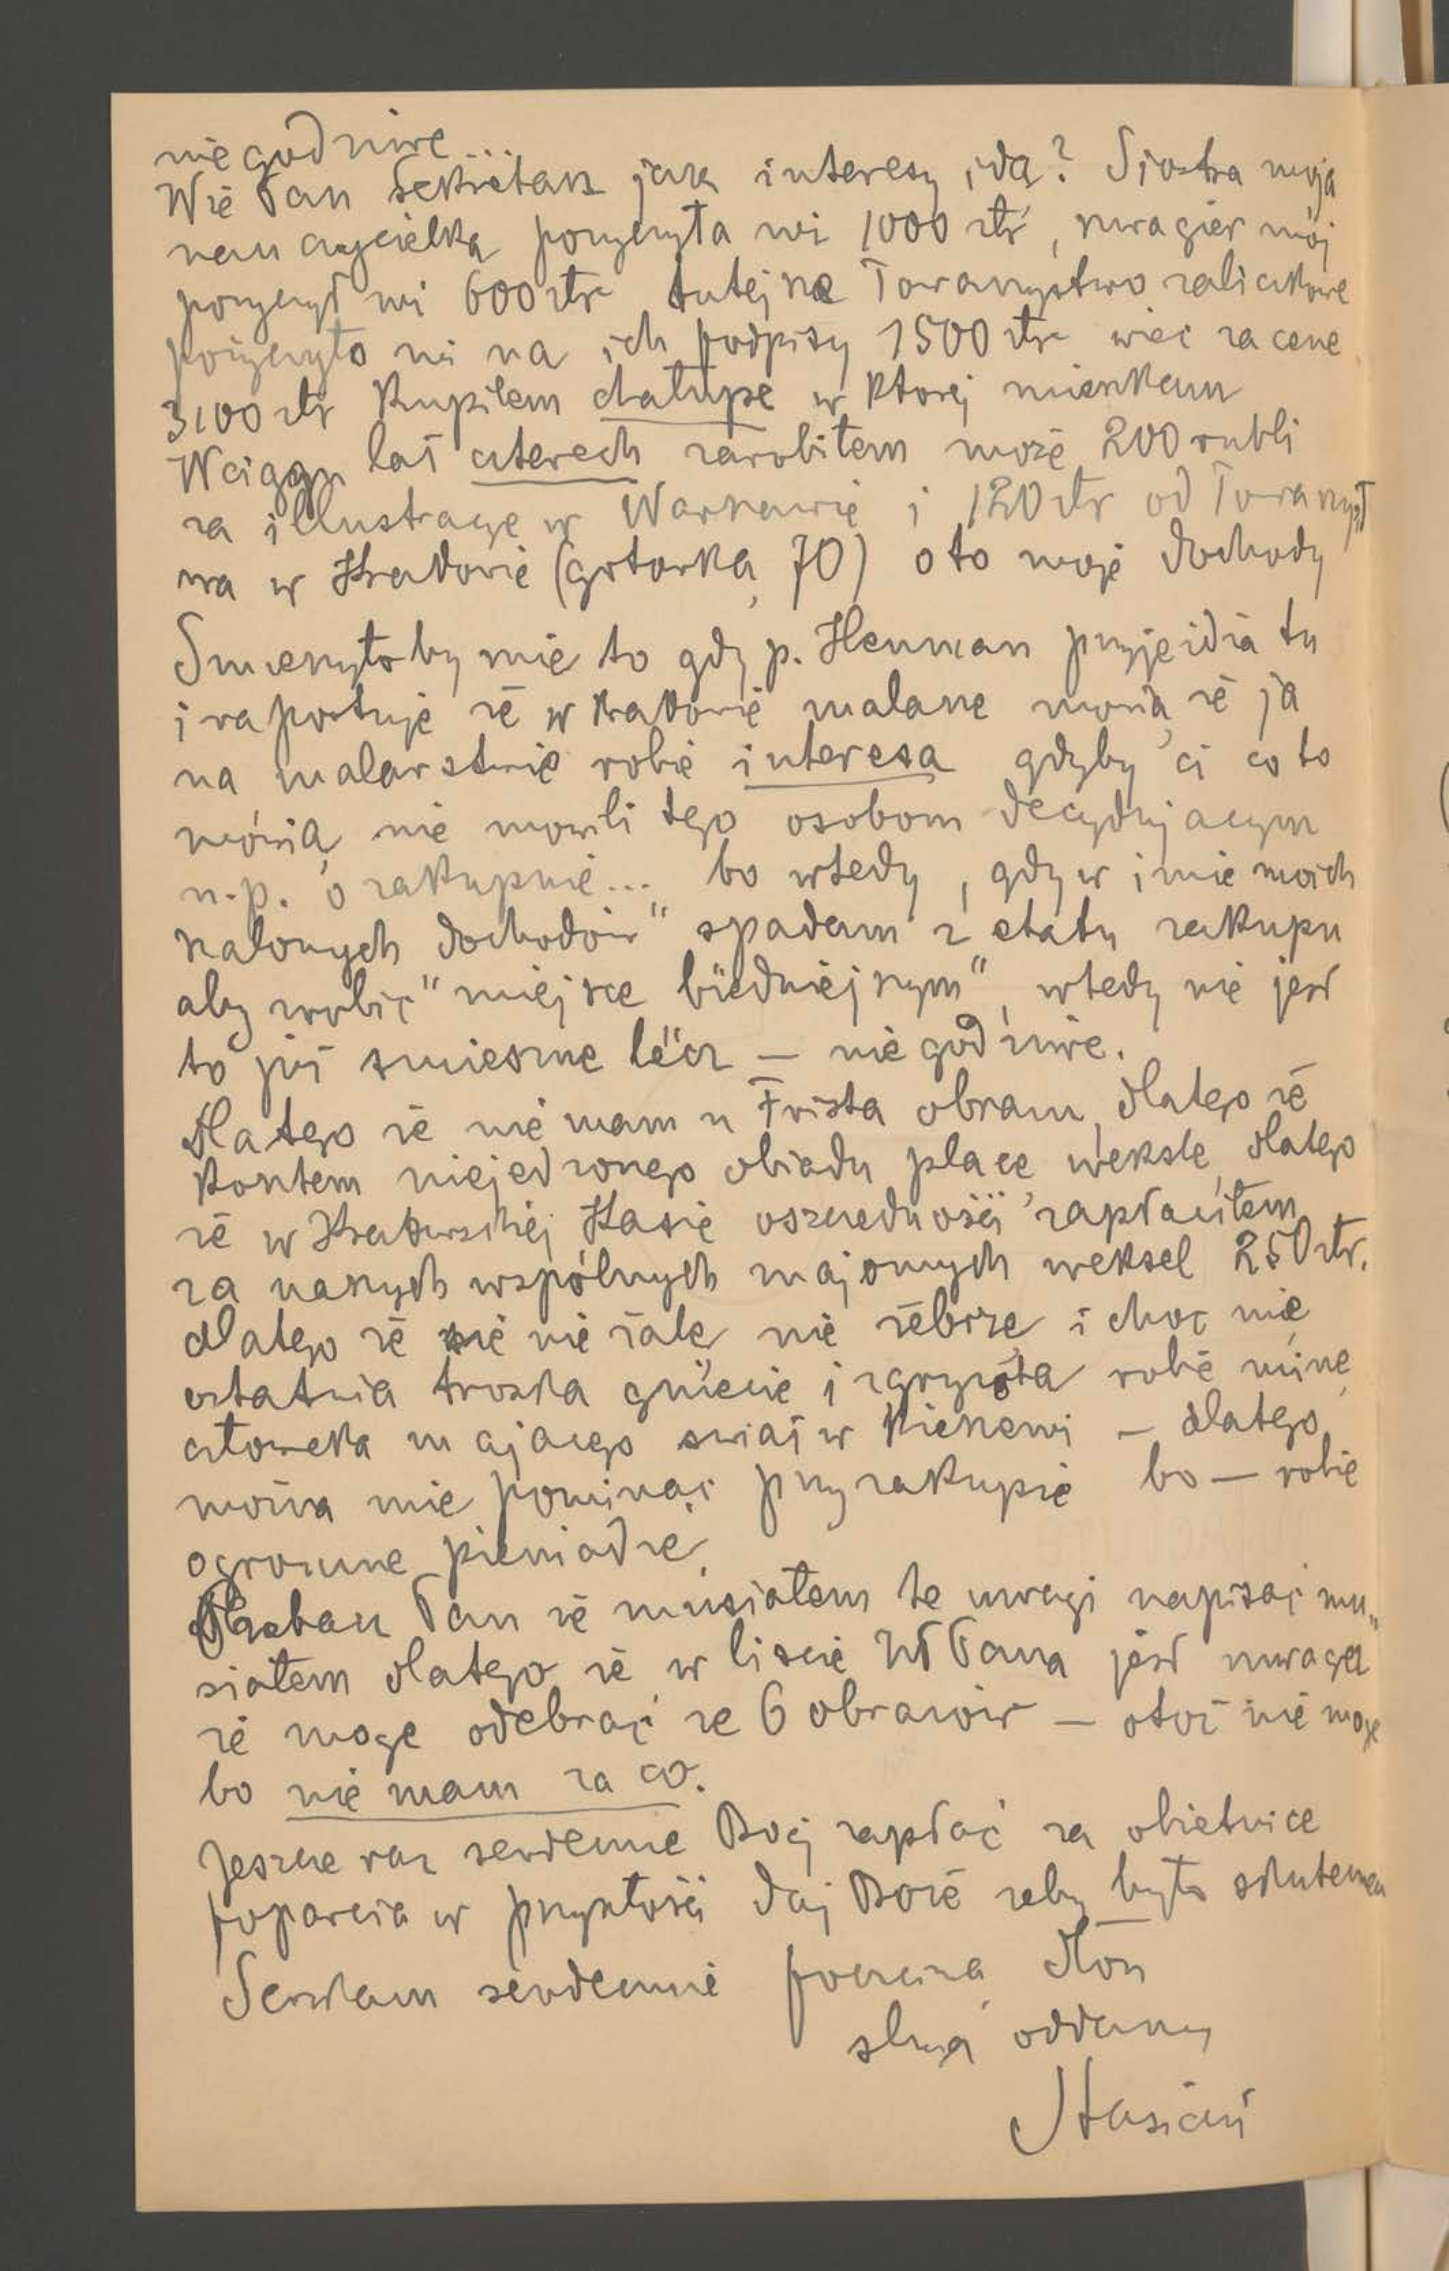 niegodziwe...
Wie Pan Sekretarz jak interesy idą? Siostra moja
nauczycielka pożyczyła mi 1000 złr, szwagier mój
pożyczył mi 600 złr tutejsze Towarzystwo zaliczkowe
pożyczyło mi na ich podpisy 1500 złr więc za cenę
3100 złr kupiłem chałupę w ktorej mieszkam
W ciągu lat czterech zarobiłem może 200 rubli
za illustracye w Warszawie i 120 złr od Towarzyst
wa w Krakowie (gotówką 70) oto moje dochody
Smieszyłoby mię to gdy p. Henman przyjeżdża tu
i raportuje że w Krakowie malarze mowią że ja
na malarstwie robię interesa gdyby ci co to
mówią nie mowili tego osobom decydującym
n.p. o zakupnie... bo wtedy, gdy w imię moich
szalonych dochodów" spadam z etatu zakupu
aby zrobić "miejsce biedniejszym", wtedy nie jest
to już smieszne lecz — niegodziwe.
Dlatego że nie mam u Frista obrazu, dlatego że
kosztem niejednego obiadu płacę weksle, dlatego
że w Krakowskiej Kasie oszczędnośći zapłaciłem
za naszych wspólnych znajomych weksel 250 złr.
dlatego że się nie żalę, nie żebrzę, i choc mię
ostatnia troska gniecie i zgryzota robię minę
człowieka mającego swiat w kieszeni — dlatego
można mię pominąć przy zakupie bo — robię
ogromne pieniądze.
Pan że musiałem te uwagi napisać mu„
siałem dlatego że w liscie WPana jest uwaga
że mogę odebrać ze 6 obrazów — otoż nie mogę
bo nie mam za co.
Jeszcze raz serdecznie Bóg zapłać za obietnice
poparcia w przyszłośći daj Boże zeby było skutecznem
Sciskam serdecznie poczciwą dłoń
sługa oddany
Stasiak